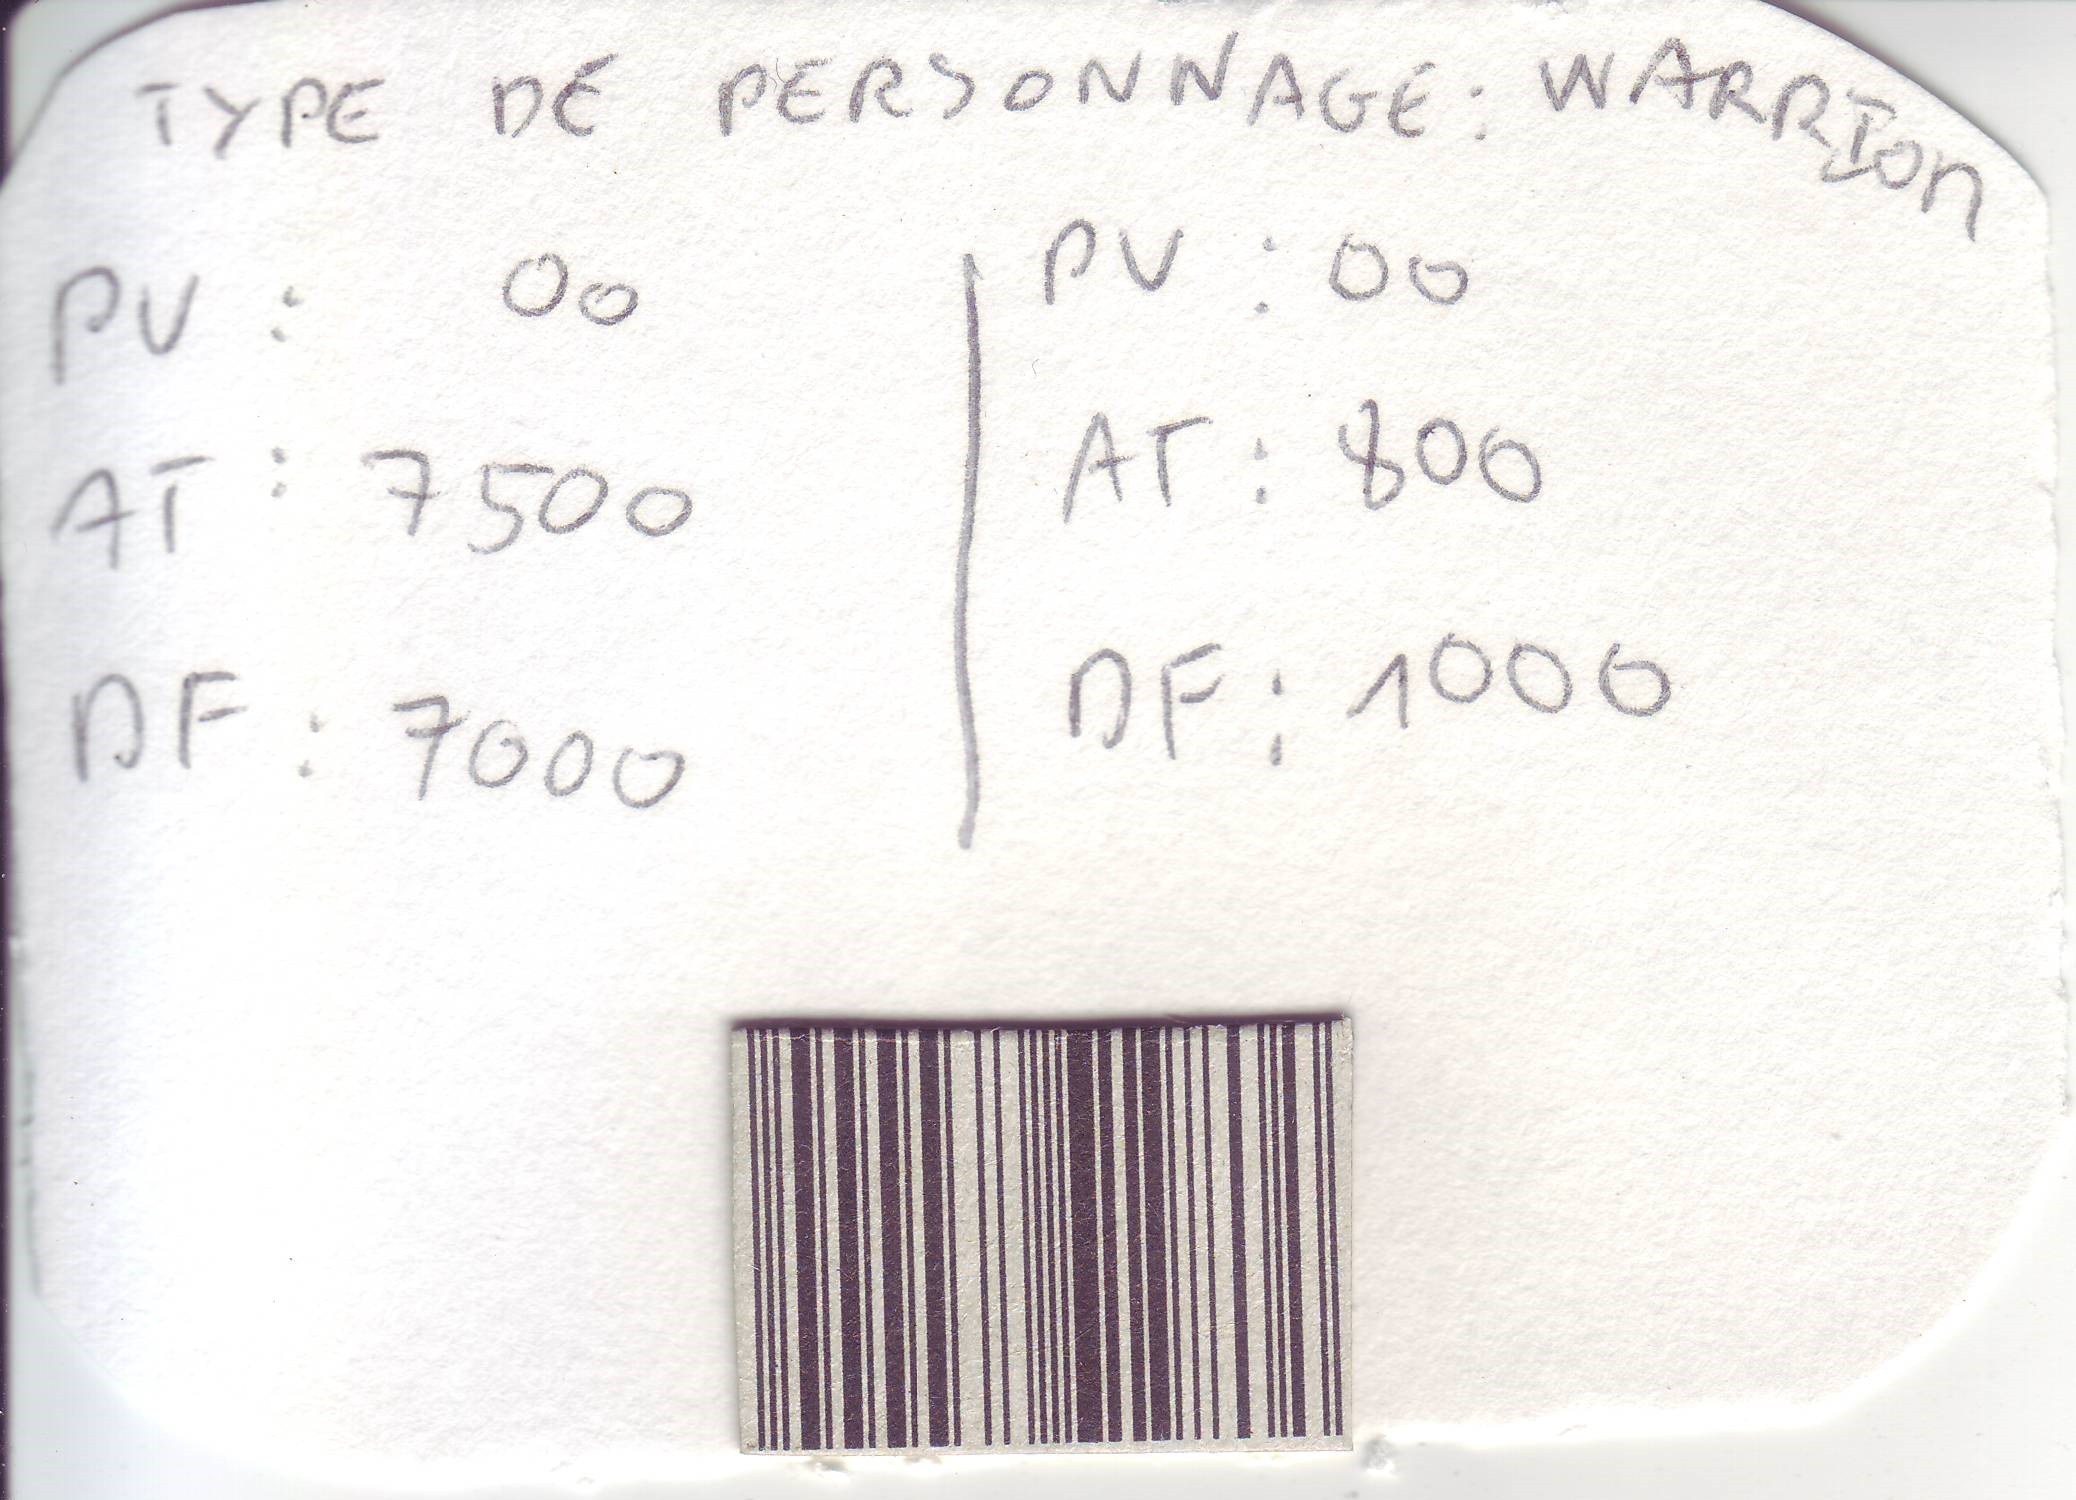 TYPE DE PERSONNAGE: WARRIOR
PV : 00
AT : 7500
DF : 7000
PV : 00
AT : 800
DF : 1000